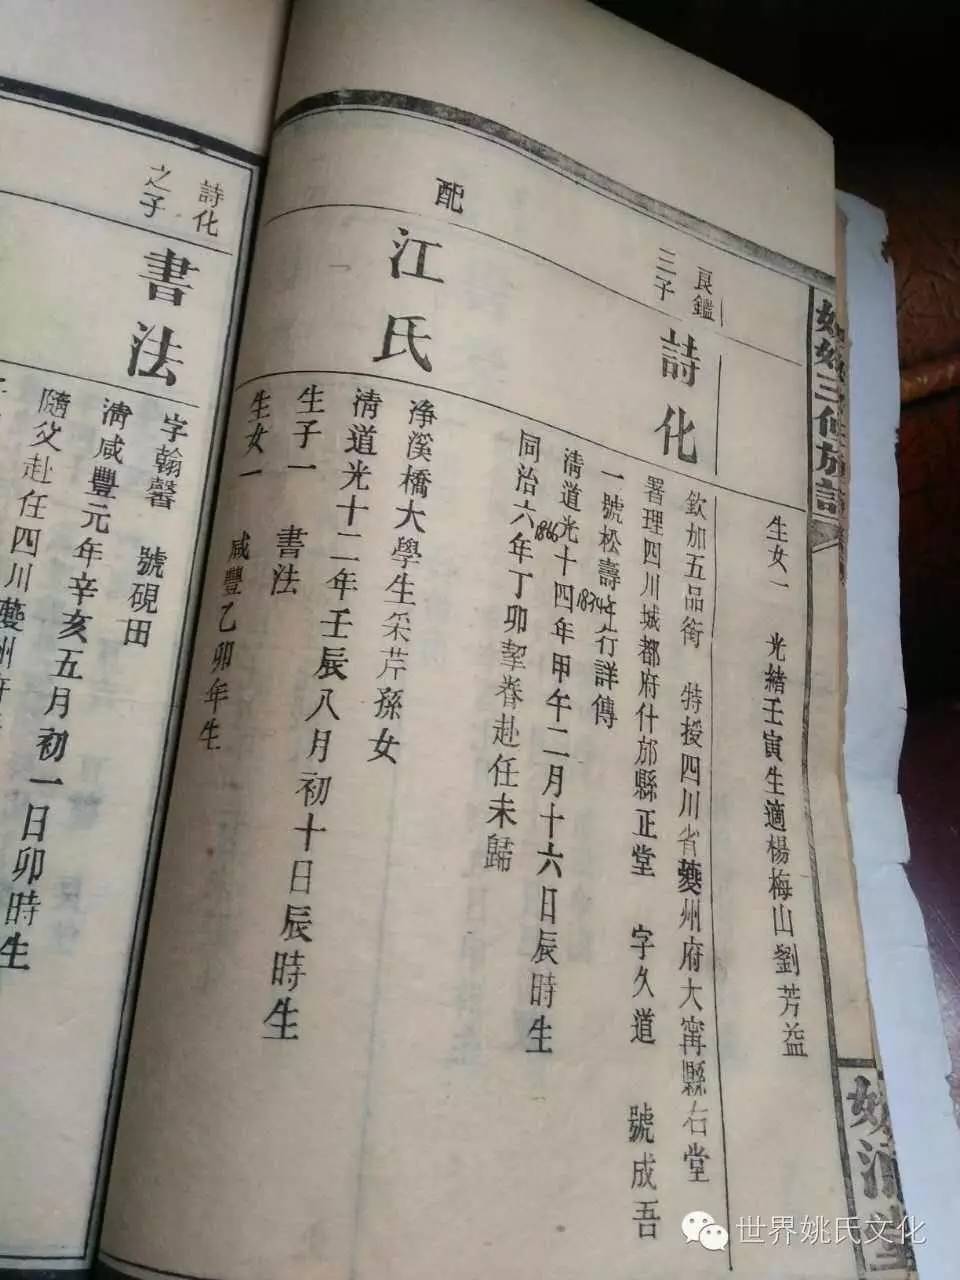 生女一 光緒壬寅生適楊梅山劉芳益
良鑑
三子
詩化
欽加五品銜 特授四川省夔州府大甯縣右堂
署理四川城都府什邡縣正堂 字久道 號成吾
一號松壽 行詳傳
清道光十四年甲午二月十六日辰時生
1834年
同治六年丁卯挈眷赴任未歸
1866
配
江氏
淨溪橋大學生采芹孫女
清道光十二年壬辰八月初十日辰時生
生子一 書法
生女一 咸豐乙卯年生
詩化
之子
書法
字翰馨 號硯田
清咸豐元年辛亥五月初一日卯時生
隨父赴任四川夔州府
世界姚氏文化